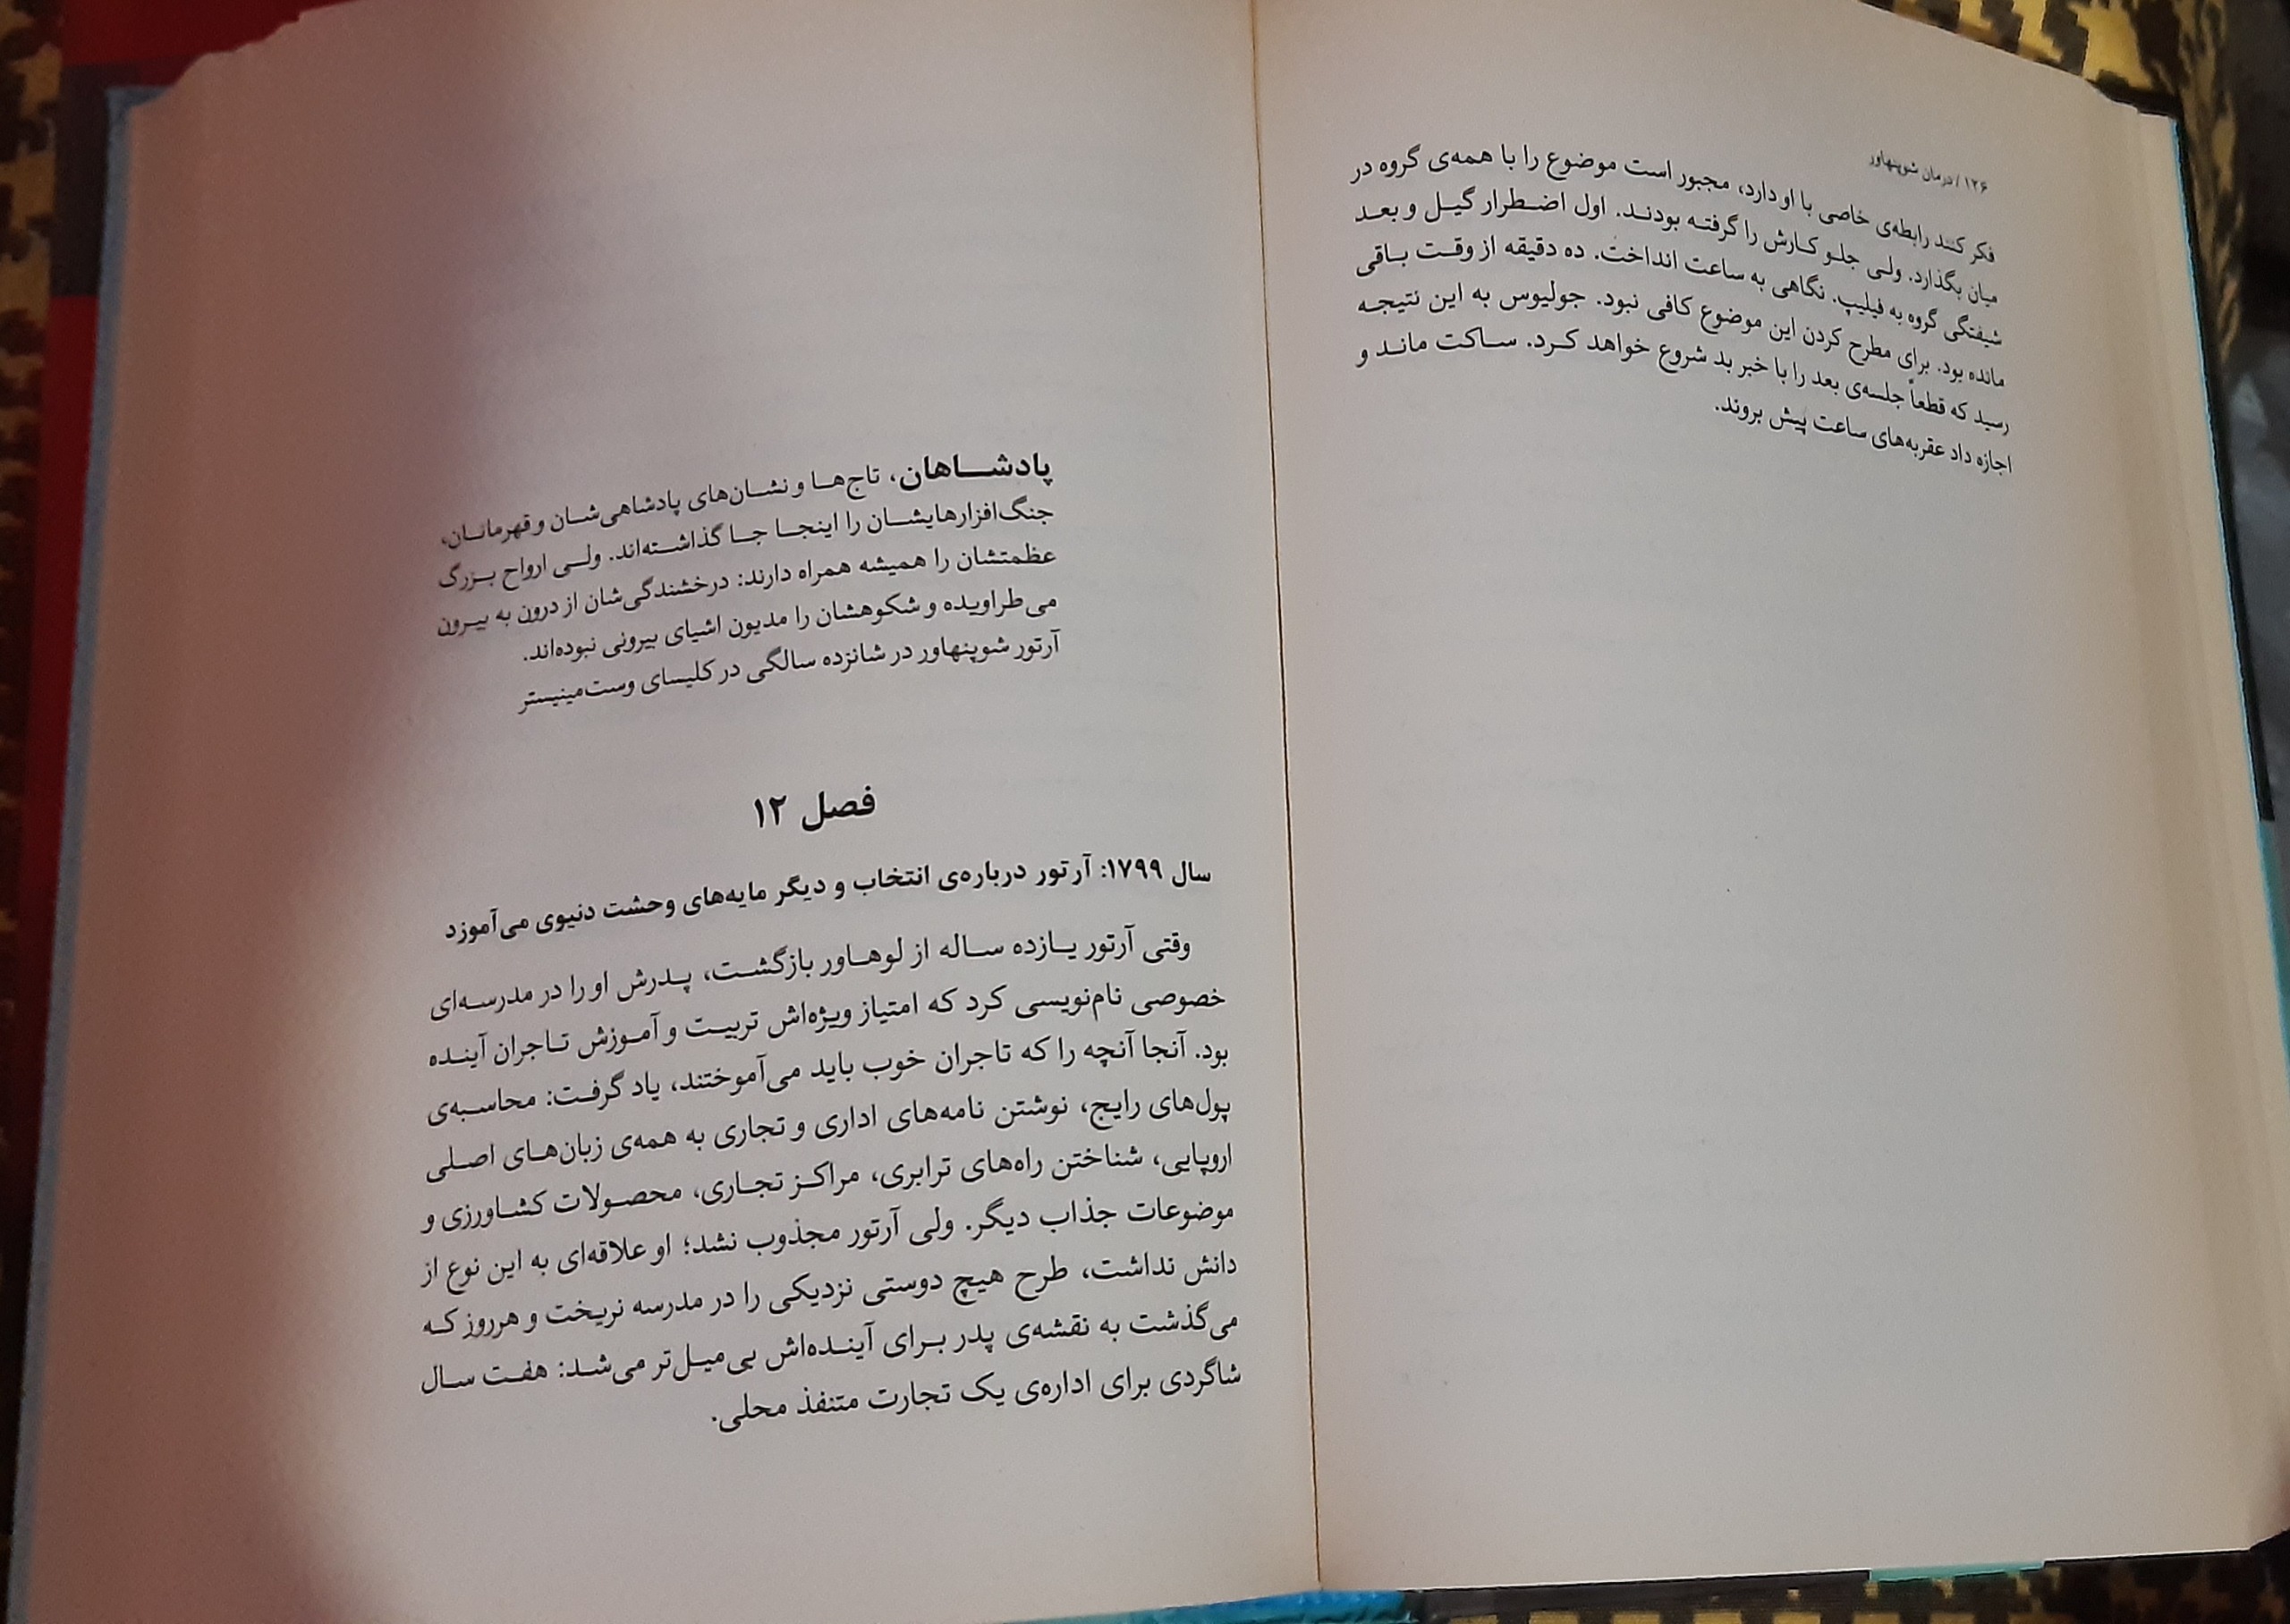 ۱۲۶ / درمان شوپنهاور
فکر کند رابطه‌ی خاصی با او دارد، مجبور است موضوع را با همه‌ی گروه در
میان بگذارد. ولی جلو کارش را گرفته بودند. اول اضطرار گیل و بعد
شیفتگی گروه به فیلیپ. نگاهی به ساعت انداخت. ده دقیقه از وقت باقی
مانده بود. برای مطرح کردن این موضوع کافی نبود. جولیوس به این نتیجه
رسید که قطعاً جلسه‌ی بعد را با خبر بد شروع خواهد کرد. ساکت ماند و
اجازه داد عقربه‌های ساعت پیش بروند.
پادشاهان، تاج‌ها و نشان‌های پادشاهی‌شان و قهرمانان،
جنگ‌افزارهایشان را اینجا جا گذاشته‌اند. ولی ارواح بزرگ
عظمتشان را همیشه همراه دارند: درخشندگی‌شان از درون به بیرون
می‌طراویده و شکوهشان را مدیون اشیای بیرونی نبوده‌اند.
آرتور شوپنهاور در شانزده سالگی در کلیسای وست‌مینیستر
فصل ۱۲
سال ۱۷۹۹: آرتور درباره‌ی انتخاب و دیگر مایه‌های وحشت دنیوی می‌آموزد
وقتی آرتور یازده ساله از لوهاور بازگشت، پدرش او را در مدرسه‌ای
خصوصی نام‌نویسی کرد که امتیاز ویژه‌اش تربیت و آموزش تاجران آینده
بود. آنجا آنچه را که تاجران خوب باید می‌آموختند، یاد گرفت: محاسبه‌ی
پول‌های رایج، نوشتن نامه‌های اداری و تجاری به همه‌ی زبان‌های اصلی
اروپایی، شناختن راه‌های ترابری، مراکز تجاری، محصولات کشاورزی و
موضوعات جذاب دیگر. ولی آرتور مجذوب نشد؛ او علاقه‌ای به این نوع از
دانش نداشت، طرح هیچ دوستی نزدیکی را در مدرسه نریخت و هرروز که
می‌گذشت به نقشه‌ی پدر برای آینده‌اش بی‌میل‌تر می‌شد: هفت سال
شاگردی برای اداره‌ی یک تجارت متنفذ محلی.